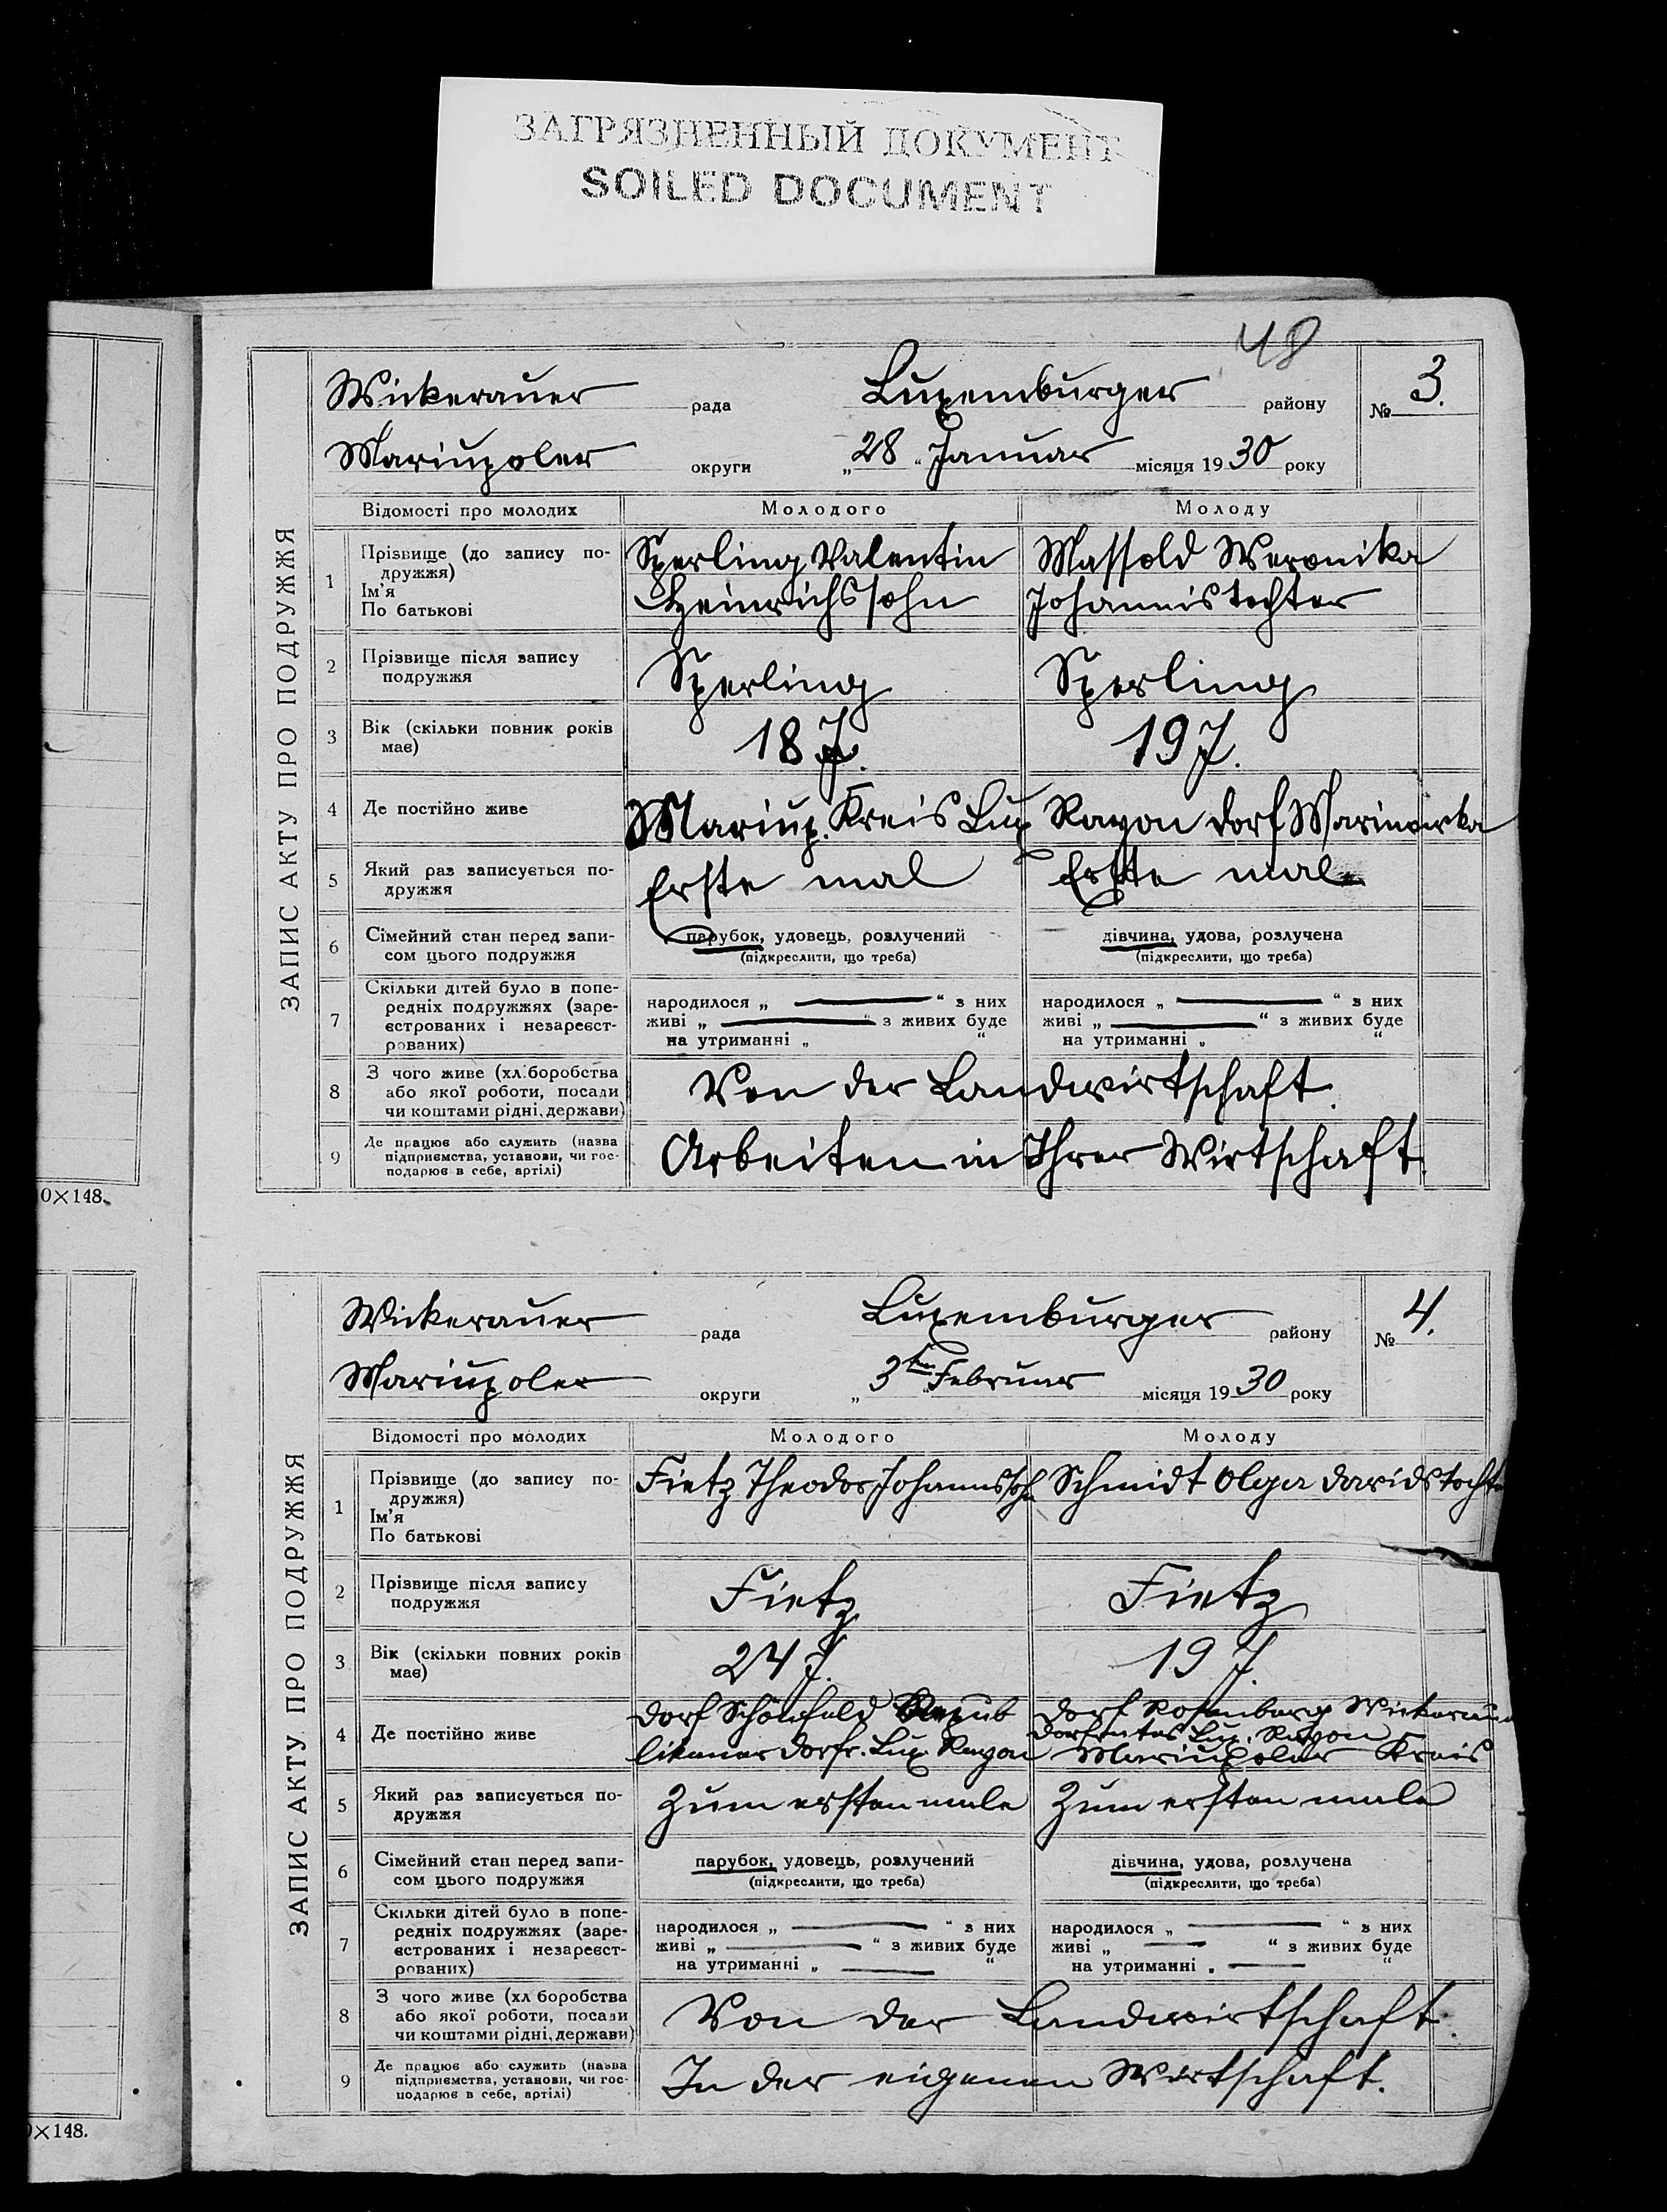 ЗАГРЯЗНЕННЫЙ ДОКУМЕНТ
SOILED DOCUMENT
48
ЗАПИС АКТУ ПРО ПОДРУЖЖЯ
Wickerauer рада Luxemburger району № 3.
Mariupoler округи „28“ Januar місяця 1930 року
Відомості про молодих Молодого Молоду
1 Прізвище (до запису по-
дружжя)
Ім'я
По батькові
Sperling Valentin
Heinrichssohn
Massold Weronika
Johannistochter
2 Прізвище після запису
подружжя
Sperling Sperling
3 Вік (скільки повних років
має)
18 J. 19 J.
4 Де постійно живе Mariup. Kreis Lux Rayon dorf Marinowka
5 Який раз записується по-
дружжя
Erste mal Erste mal
6 Сімейний стан перед запи-
сом цього подружжя
парубок, удовець, розлучений
(підкреслити, що треба)
дівчина, удова, розлучена
(підкреслити, що треба)
7 Скільки дітей було в попе-
редніх подружжях (заре-
єстрованих і незареєст-
рованих)
народилося „ “ з них
живі „ “ з живих буде
на утриманні „ “
народилося „ “ з них
живі „ “ з живих буде
на утриманні „ “
8 З чого живе (хліборобства
або якої роботи, посади
чи коштами рідні, держави)
Von der Landwirtschaft.
9 Де працює або служить (назва
підприємства, установи, чи гос-
подарює в себе, артілі)
Arbeiten in Ihrer Wirtschaft.
0×148.
ЗАПИС АКТУ ПРО ПОДРУЖЖЯ
Wickerauer рада Luxemburger району № 4.
Mariupoler округи „3ten“ Februar місяця 1930 року
Відомості про молодих Молодого Молоду
1 Прізвище (до запису по-
дружжя)
Ім'я
По батькові
Fietz Theodor Johannssohn Schmidt Olga Davidstochte
2 Прізвище після запису
подружжя
Fietz Fietz
3 Вік (скільки повних років
має)
24 J. 19 J.
4 Де постійно живе
Dorf Schönfeld Repub
likaner dorfr. Lux. Rayon
Dorf Rosenberg Wickerauer
Dorfrates Lux. Rayon
Mariupoler Kreis
5 Який раз записується по-
дружжя
Zum ersten male Zum ersten male
6 Сімейний стан перед запи-
сом цього подружжя
парубок, удовець, розлучений
(підкреслити, що треба)
дівчина, удова, розлучена
(підкреслити, що треба)
7 Скільки дітей було в попе-
редніх подружжях (заре-
єстрованих і незареєст-
рованих)
народилося „ “ з них
живі „ “ з живих буде
на утриманні „ “
народилося „ “ з них
живі „ “ з живих буде
на утриманні „ “
8 З чого живе (хліборобства
або якої роботи, посади
чи коштами рідні, держави)
Von der Landwirtschaft.
9 Де працює або служить (назва
підприємства, установи, чи гос-
подарює в себе, артілі)
In der eigenen Wirtschaft.
×148.